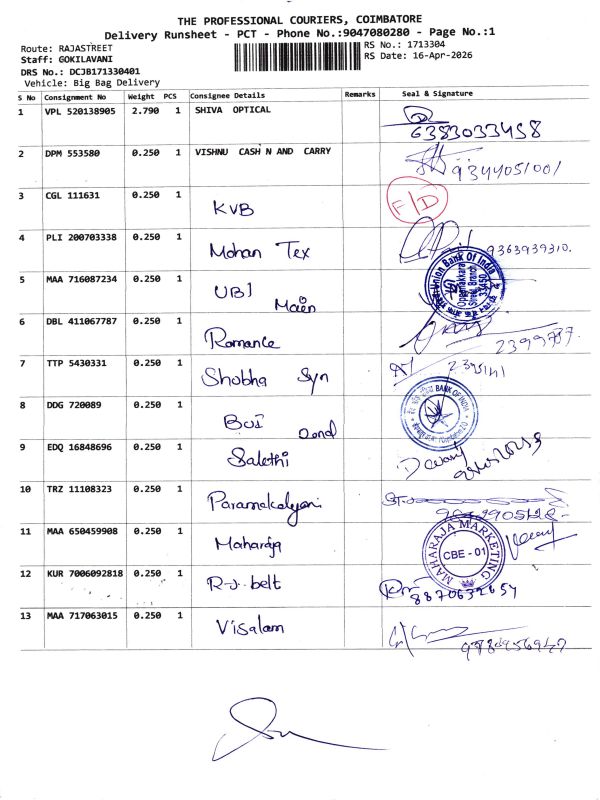 THE PROFESSIONAL COURIERS, COIMBATORE
Delivery Runsheet - PCT - Phone No.:9047080280 - Page No.:1
Route: RAJASTREET
RS No.: 1713304
Staff: GOKILAVANI
RS Date: 16-Apr-2026
DRS No.: DCJB171330401
Vehicle: Big Bag Delivery
S No Consignment No Weight PCS Consignee Details Remarks Seal & Signature
1 VPL 520138905 2.790 1 SHIVA OPTICAL 6383033458
2 DPM 553580 0.250 1 VISHNU CASH N AND CARRY 9344051001
3 CGL 111631 0.250 1 KVB F/D
4 PLI 200703338 0.250 1 Mohan Tex 9363939310.
5 MAA 716087234 0.250 1 UBI Main Union Bank Of India
6 DBL 411067787 0.250 1 Romance 2399737.
7 TTP 5430331 0.250 1 Shobha Syn
8 DDG 720089 0.250 1 BOI BANK OF INDIA
9 EDQ 16848696 0.250 1 Salethi
10 TRZ 11108323 0.250 1 Paramakalyani
11 MAA 650459908 0.250 1 Maharaja MAHARAJA MARKETING CBE - 01
12 KUR 7006092818 0.250 1 R-J. belt 8870632654
13 MAA 717063015 0.250 1 Visalam